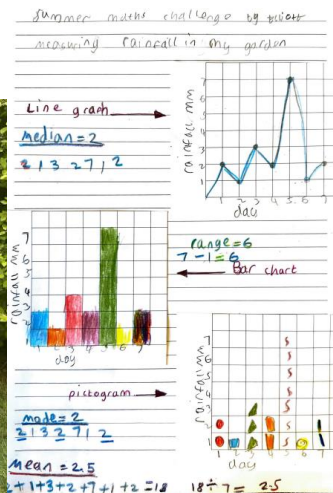 Summer maths challenge by Elliott
measuring rainfall in my garden
Line graph
median = 2
2 1 3 2 7 1 2
rainfall mm
7
6
5
4
3
2
1
1 2 3 4 5 6 7
day
range = 6
7 - 1 = 6
Bar chart
rainfall mm
7
6
5
4
3
2
1
1 2 3 4 5 6 7
day
pictogram
mode = 2
2 1 3 2 7 1 2
mean = 2.5
2+1+3+2+7+1+2=18
18÷7= 2.5
rainfall mm
7
6
5
4
3
2
1
1 2 3 4 5 6 7
day